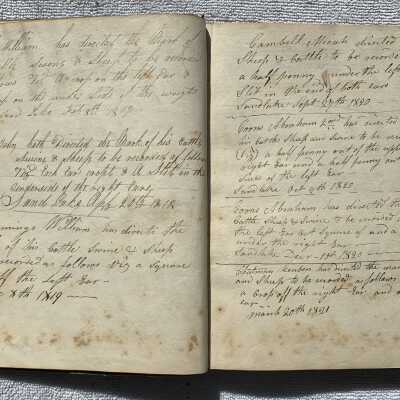 William has directed the Mark of
Swine & Sheep to be recorded
Viz A crop on the left Ear &
on the under side of the right
Sand Lake Feb 8th 1819
both directed the Mark of his Cattle
Swine & Sheep to be recorded as follows
Viz Each Ear cropt & A Slit in the
underside of the right Ear
Sand Lake Apr 20th 1818
William has directed the
of his Cattle Swine & Sheep
recorded as follows Viz a Square
off the Left Ear
8th 1819
Cambell Micah directed
Sheep & Cattle to be recorded
a half penny under the left
Slit in the end of both ears
Sandlake Sept 27th 1820
Coons Abraham 2nd has directed
his Cattle Sheep and Swine to be
(Viz) a half penny out of the upper
right Ear and a half penny out
side of the left Ear
Sandlake Oct 9th 1820
Coons Abraham has directed the
Cattle Sheep & Swine to be
the left Ear cut Square off and a
under the right Ear
Sandlake Decr 1820
has directed the
and Sheep to be recorded as follows
a Crop off the right Ear and
ear
March 20th 1821